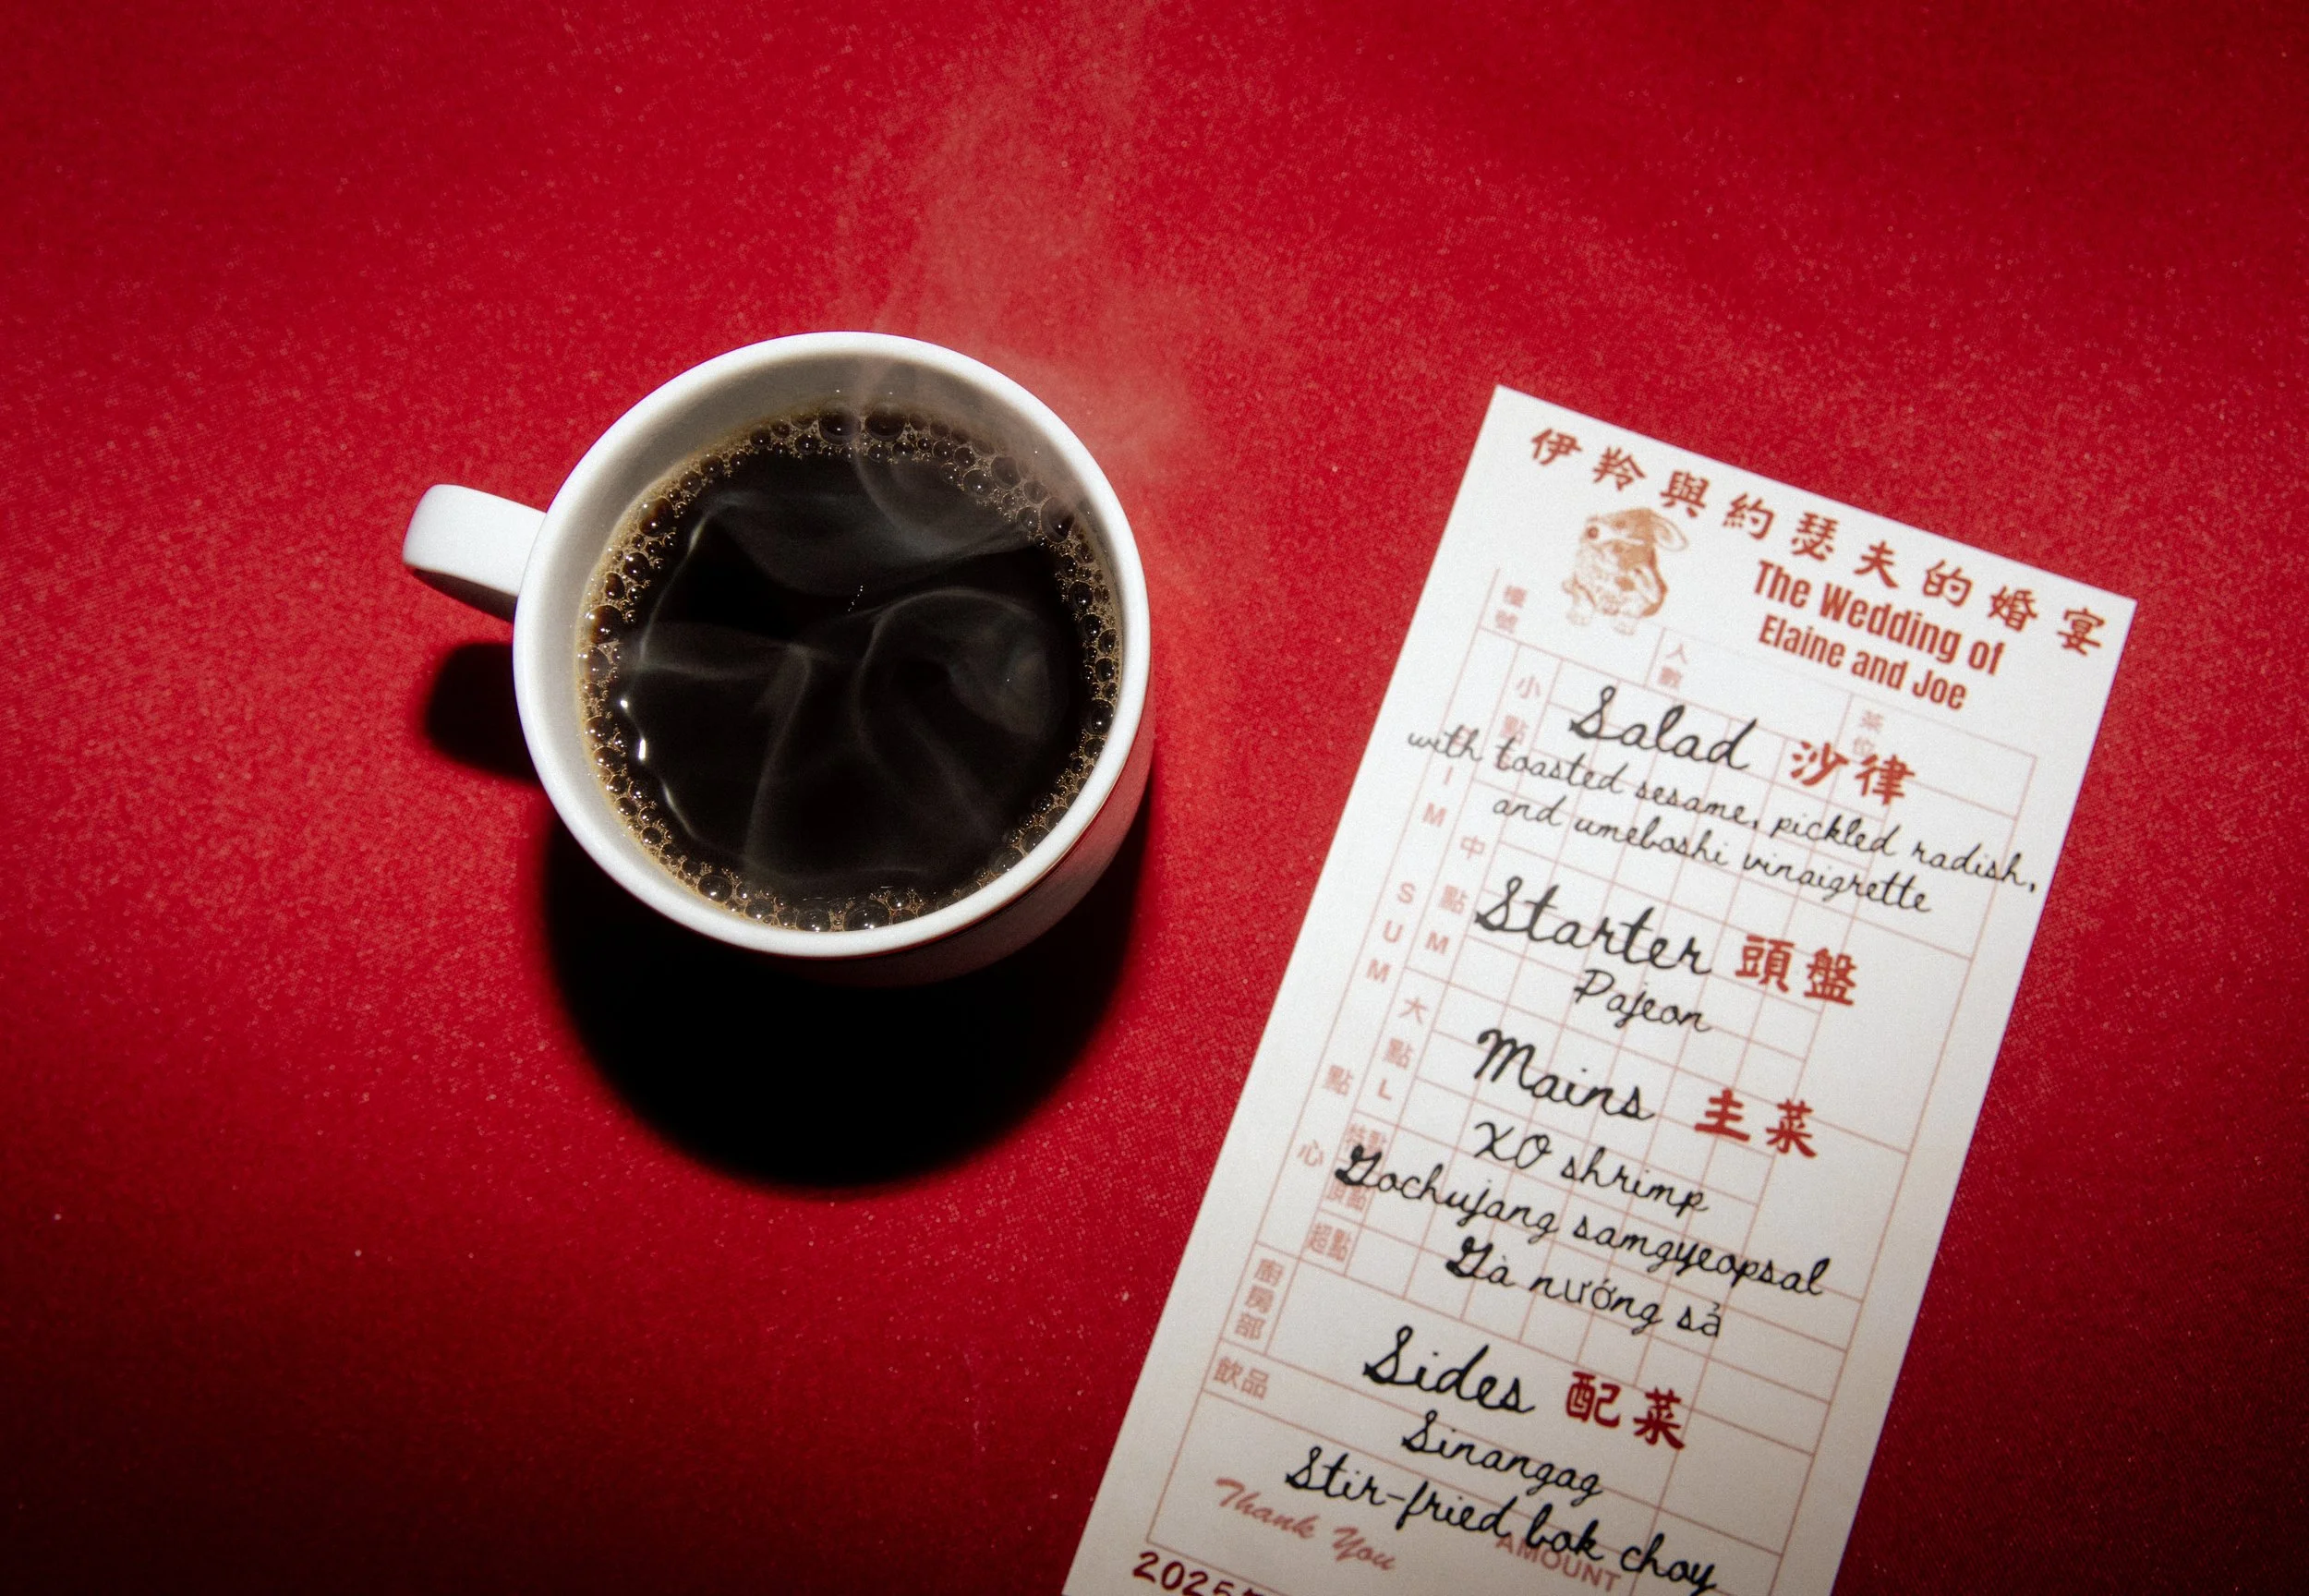 伊羚與約瑟夫的婚宴
The Wedding of
Elaine and Joe
檯號
人數
茶位
小點
Salad 沙律
with toasted sesame, pickled radish,
and umeboshi vinaigrette
中點 M
Starter 頭盤
Pajeon
大點 L
Mains 主菜
XO shrimp
特點
Gochujang samgyeopsal
頂點
超點
Gà nướng sả
IM SUM 點心
廚房部
Sides 配菜
飲品
Sinangag
Stir-fried bok choy
Thank You
AMOUNT
2025